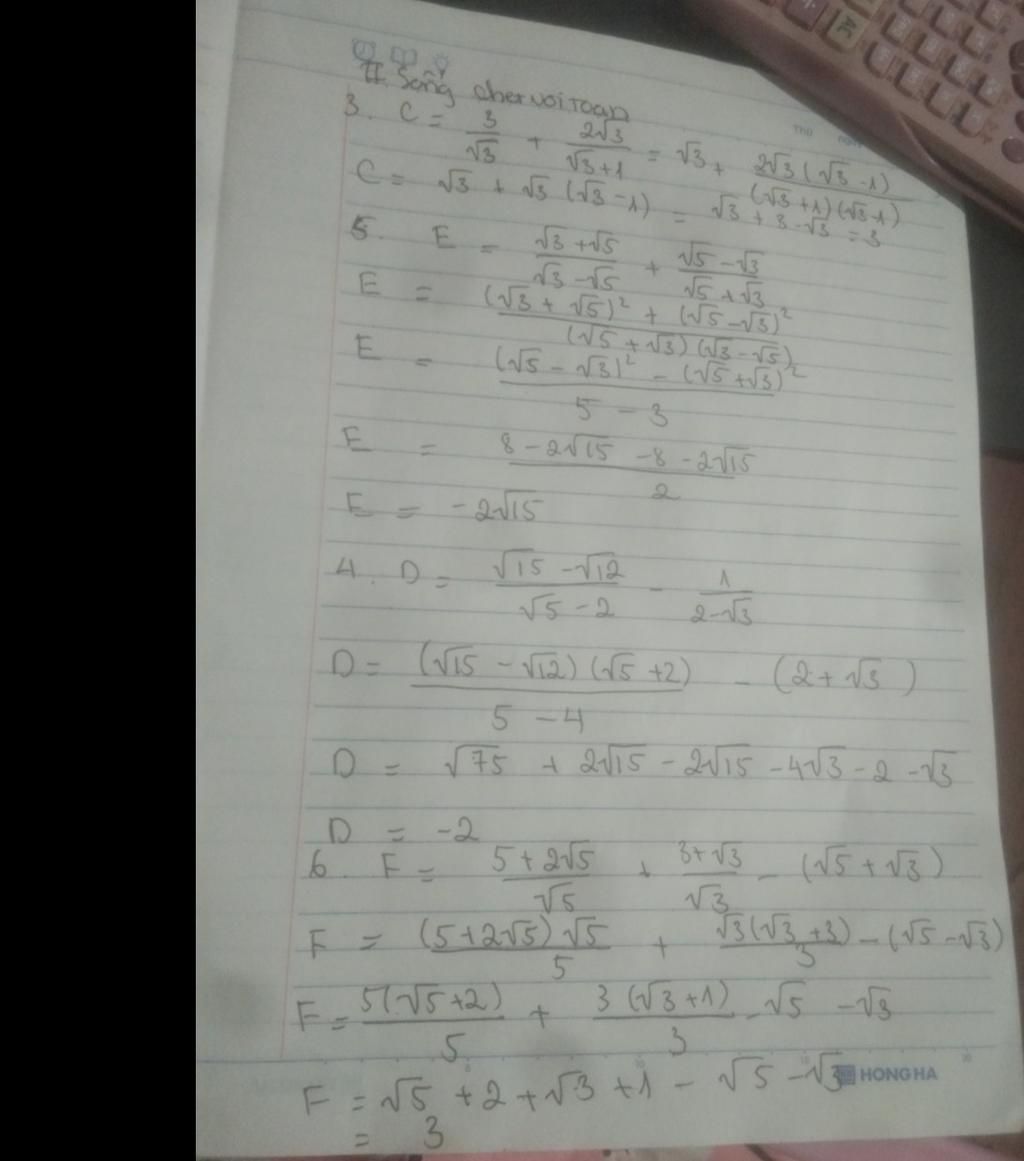 II. Sống cher với Toan
3. C = 3/√3 + 2√3/(√3+1) = √3 + 2√3(√3-1)/((√3+1)(√3-1))
C = √3 + √3(√3-1) = √3 + 3 - √3 = 3
5. E = (√3+√5)/(√3-√5) + (√5-√3)/(√5+√3)
E = ((√3+√5)² + (√5-√3)²)/((√5+√3)(√3-√5))
E = ((√5-√3)² - (√5+√3)²)/(5-3)
E = (8-2√15 -8-2√15)/2
E = -2√15
4. D = (√15-√12)/(√5-2) - 1/(2-√3)
D = (√15-√12)(√5+2)/(5-4) - (2+√3)
D = √75 + 2√15 - 2√15 - 4√3 - 2 - √3
D = -2
6. F = (5+2√5)/√5 + (3+√3)/√3 - (√5+√3)
F = (5+2√5)√5/5 + √3(√3+3)/3 - (√5-√3)
F = 5(√5+2)/5 + 3(√3+1)/3 - √5 - √3
HONG HA
F = √5 + 2 + √3 + 1 - √5 - √3
= 3